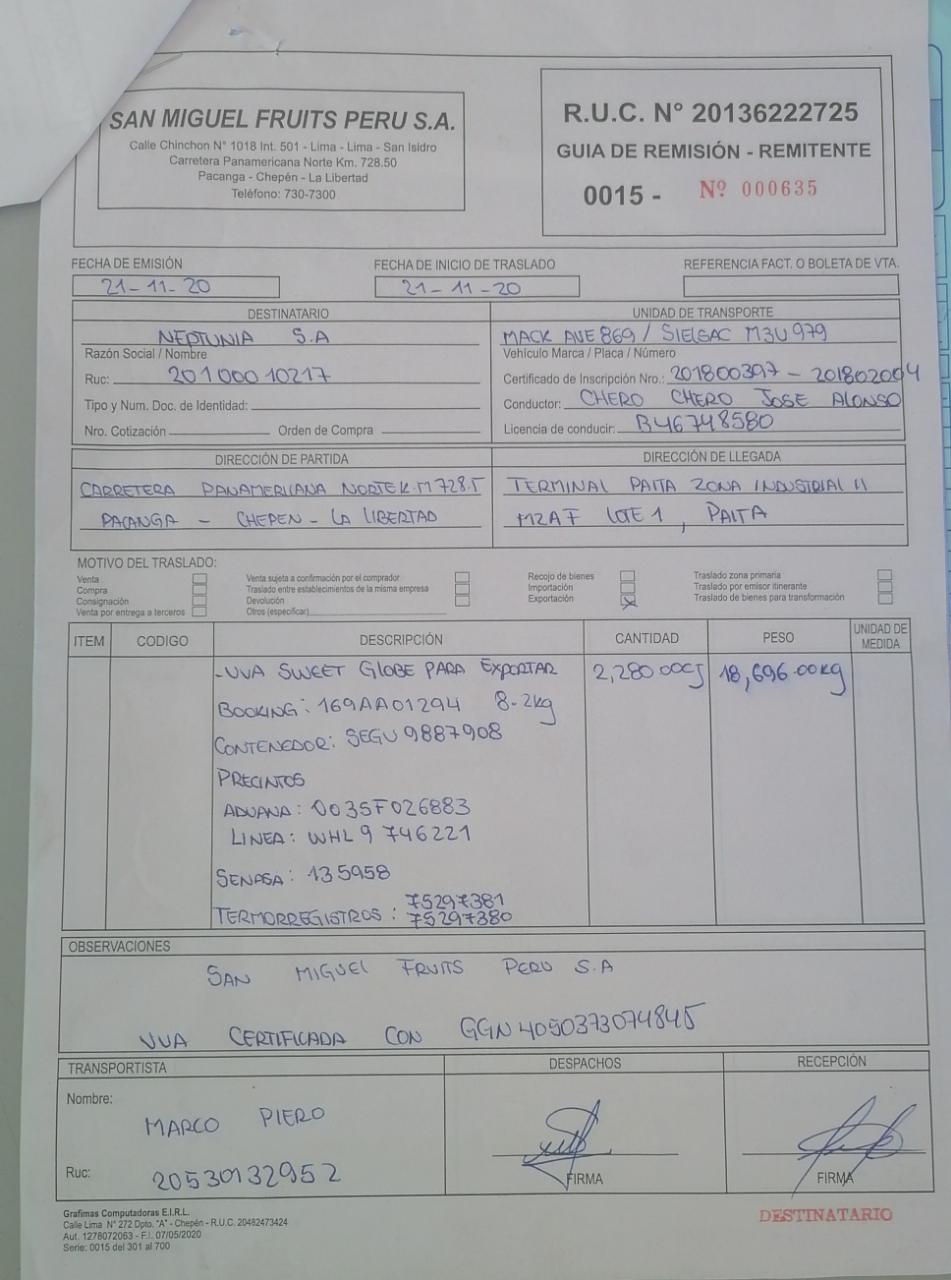 SAN MIGUEL FRUITS PERU S.A.
Calle Chinchon N° 1018 Int. 501 - Lima - Lima - San Isidro
Carretera Panamericana Norte Km. 728.50
Pacanga - Chepén - La Libertad
Teléfono: 730-7300
R.U.C. N° 20136222725
GUIA DE REMISIÓN - REMITENTE
0015 - Nº 000635
FECHA DE EMISIÓN
21-11-20
FECHA DE INICIO DE TRASLADO
21-11-20
REFERENCIA FACT. O BOLETA DE VTA.
DESTINATARIO
NEPTUNIA S.A
Razón Social / Nombre
Ruc: 20100010217
Tipo y Num. Doc. de Identidad:
Nro. Cotización Orden de Compra
UNIDAD DE TRANSPORTE
MACK AVE869 / SIELSAC M3U979
Vehículo Marca / Placa / Número
Certificado de Inscripción Nro.: 201800397 - 201802004
Conductor: CHERO CHERO JOSE ALONSO
Licencia de conducir: B46748580
DIRECCIÓN DE PARTIDA
CARRETERA PANAMERICANA NORTE K.M 728.5
PACANGA - CHEPEN - LA LIBERTAD
DIRECCIÓN DE LLEGADA
TERMINAL PAITA ZONA INDUSTRIAL II
MZAF LOTE 1, PAITA
MOTIVO DEL TRASLADO:
Venta
Compra
Consignación
Venta por entrega a terceros
Venta sujeta a confirmación por el comprador
Traslado entre establecimientos de la misma empresa
Devolución
Otros (especificar)
Recojo de bienes
Importación
Exportación X
Traslado zona primaria
Traslado por emisor itinerante
Traslado de bienes para transformación
ITEM CODIGO DESCRIPCIÓN CANTIDAD PESO UNIDAD DE MEDIDA
-UVA SWEET GLOBE PARA EXPORTAR 2,280.00CJ 18,696.00kg
BOOKING: 169AA01294 8.2kg
CONTENEDOR: SEGU 9887908
PRECINTOS
ADUANA: 0035F026883
LINEA: WHL9 746221
SENASA: 135958
TERMORREGISTROS: 75297381
75297380
OBSERVACIONES
SAN MIGUEL FRUITS PERU S.A
UVA CERTIFICADA CON GGN 4050373074845
TRANSPORTISTA
Nombre: MARCO PIERO
Ruc: 20530132952
DESPACHOS
FIRMA
RECEPCIÓN
FIRMA
Grafimas Computadoras E.I.R.L.
Calle Lima N° 272 Dpto. "A" - Chepén - R.U.C. 20482473424
Aut. 1278072063 - F.I. 07/05/2020
Serie: 0015 del 301 al 700
DESTINATARIO